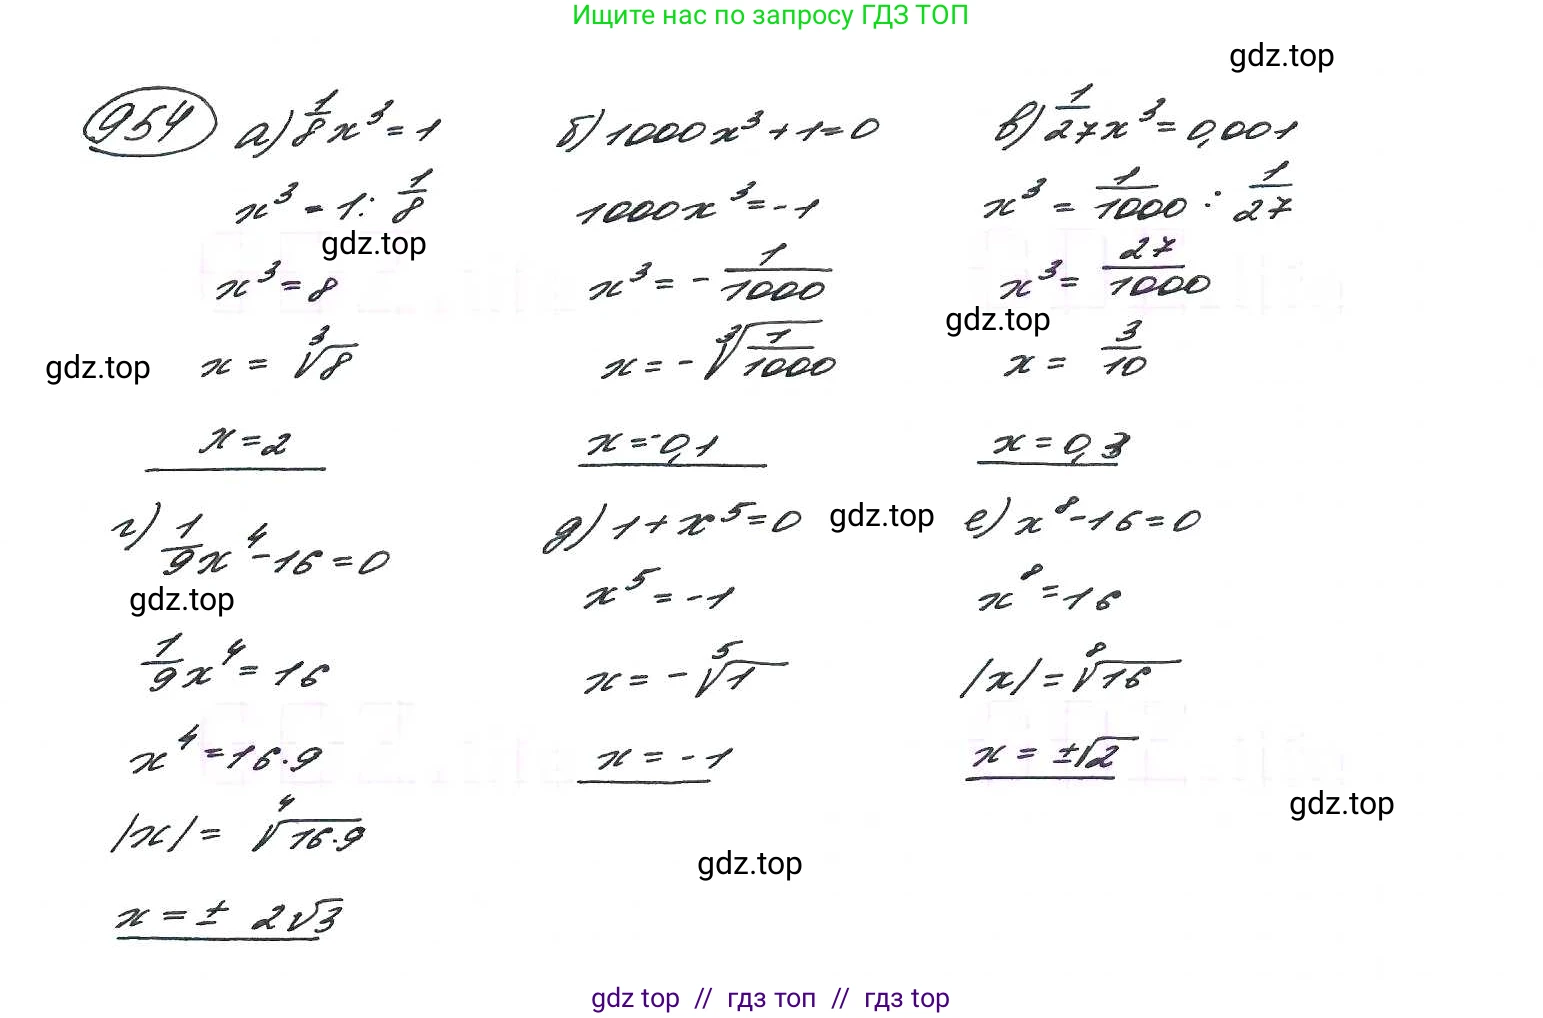 Ищите нас по запросу ГДЗ ТОП
gdz.top
954
а) 1/8 x³ = 1
x³ = 1 : 1/8
gdz.top
x³ = 8
gdz.top
x = ³√8
x = 2
б) 1000x³ + 1 = 0
1000x³ = -1
x³ = - 1/1000
x = - ³√(1/1000)
x = -0,1
в) 1/27 x³ = 0,001
x³ = 1/1000 : 1/27
x³ = 27/1000
gdz.top
x = 3/10
x = 0,3
г) 1/9 x⁴ - 16 = 0
gdz.top
1/9 x⁴ = 16
x⁴ = 16·9
|x| = ⁴√(16·9)
x = ± 2√3
д) 1 + x⁵ = 0
x⁵ = -1
x = - ⁵√1
x = -1
gdz.top
е) x⁸ - 16 = 0
x⁸ = 16
|x| = ⁸√16
x = ±√2
gdz.top
gdz.top
gdz top // гдз топ // гдз top